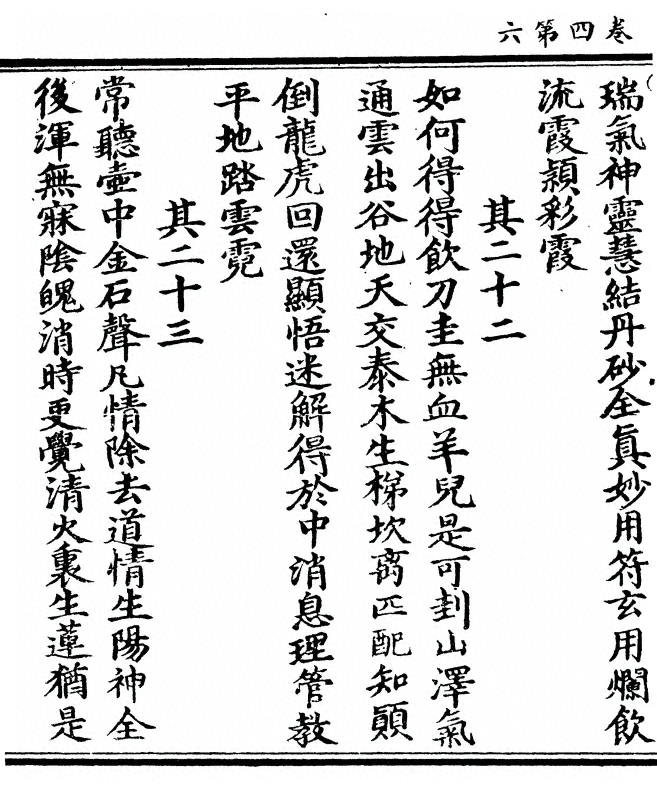 卷四第六
瑞氣神靈慧結丹砂全眞妙用符玄用爛飲
流霞潁彩霞
其二十二
如何得得飲刀圭無血羊兒是可刲山澤氣
通雲出谷地天交泰木生梯坎离匹配知顚
倒龍虎回還顯悟迷解得於中消息理管教
平地踏雲霓
其二十三
常聽壷中金石聲凡情除去道情生陽神全
後渾無寐陰魄消時更覺清火裏生蓮猶是